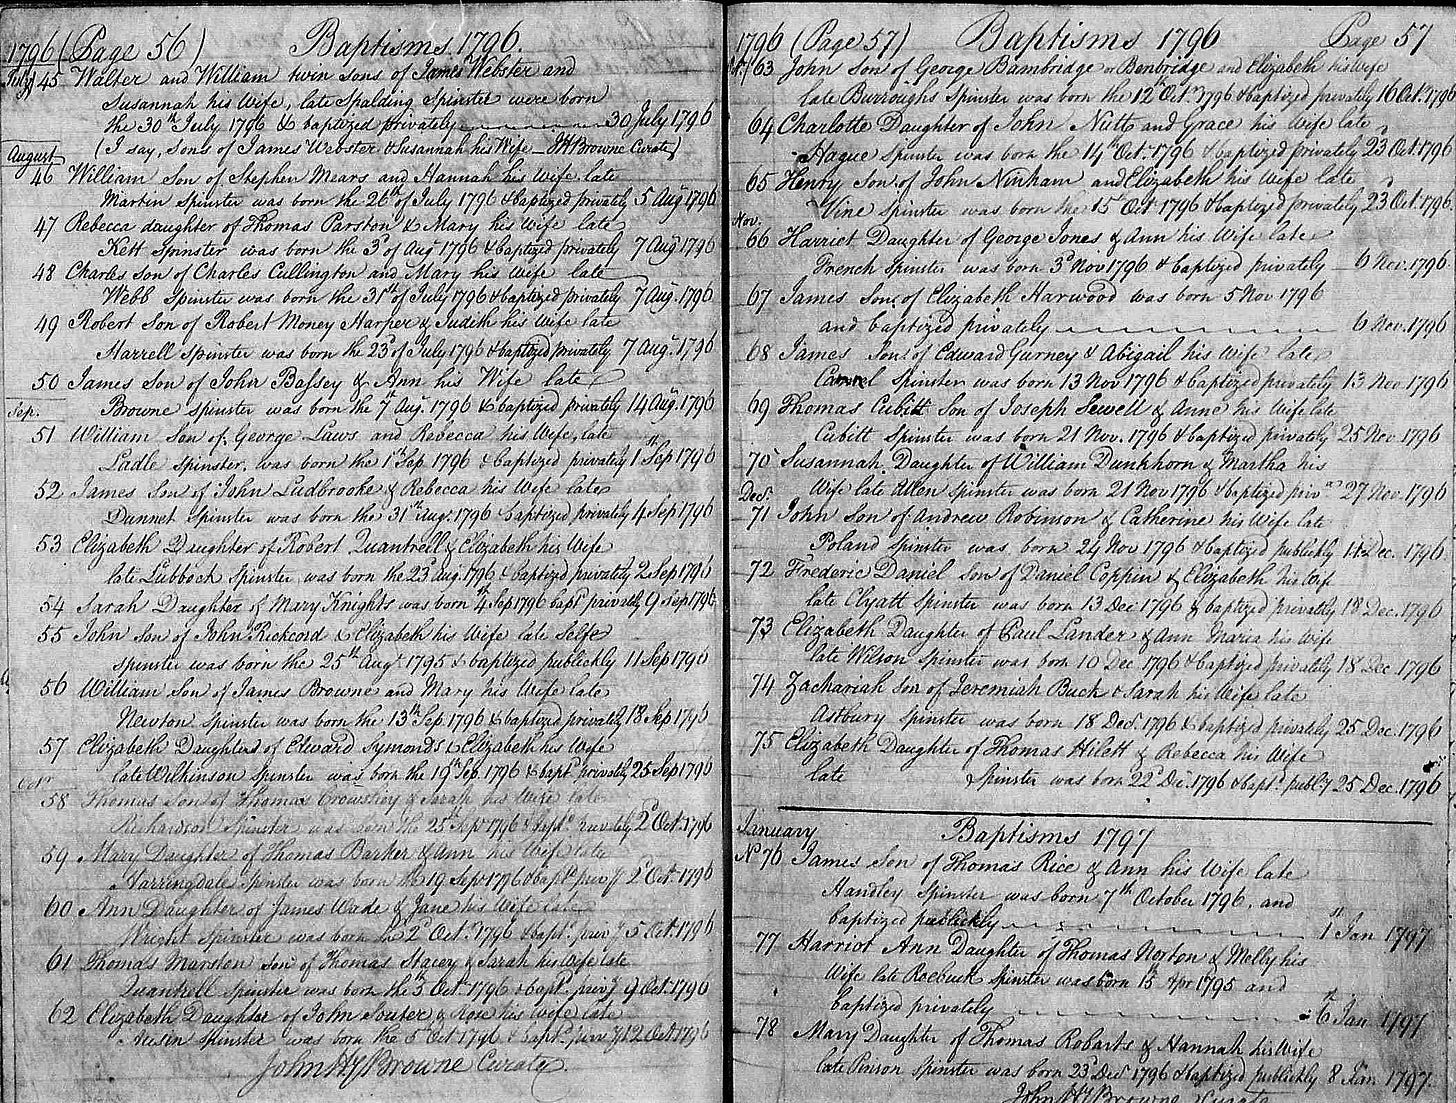 1796 (Page 56) Baptisms 1796.
July 45 Walter and William twin sons of James Webster and
Susannah his Wife, late Spalding Spinster were born
the 30th July 1796 & baptized privately 30 July 1796
(I say, sons of James Webster & Susannah his Wife - JH Browne Curate)
August
46 William Son of Stephen Mears and Hannah his Wife late
Martin Spinster was born the 26th of July 1796 & baptized privately 5 Aug 1796
47 Rebecca daughter of Thomas Parston & Mary his Wife late
Kett Spinster was born the 3d of Aug 1796 & baptized privately 7 Aug 1796
48 Charles son of Charles Cullington and Mary his Wife late
Webb Spinster was born the 31st of July 1796 & baptized privately 7 Aug. 1796
49 Robert Son of Robert Money Harper & Judith his Wife late
Harrell spinster was born the 23d of July 1796 & baptized privately 7 Aug. 1796
50 James Son of John Bassey & Ann his Wife late
Browne spinster was born the 7th Aug. 1796 & baptized privately 14 Aug. 1796
Sep.
51 William Son of George Laws and Rebecca his Wife, late
Ladle spinster, was born the 1st Sep 1796 & baptized privately 1st Sep 1796
52 James Son of John Ludbrooke & Rebecca his Wife late
Dannet Spinster was born the 31st Augt 1796 & baptized privately 4 Sep 1796
53 Elizabeth Daughter of Robert Quantrell & Elizabeth his Wife
late Lubbock spinster was born the 23d Aug. 1796 & baptized privately 2 Sep 1796
54 Sarah Daughter of Mary Knights was born 4th Sep 1796 bapd privately 9 Sep 1796
55 John Son of John Rickcord & Elizabeth his Wife late Selfe
spinster was born the 25th Augt 1795 & baptized publickly 11 Sep 1796
56 William Son of James Browne and Mary his Wife late
Newson spinster was born the 13th Sep. 1796 & baptized privately 18 Sep 1796
57 Elizabeth Daughter of Edward Symonds & Elizabeth his Wife
late Wilkinson spinster was born the 19th Sep. 1796 & bapt. privately 25 Sep 1796
Oct
58 Thomas Son of Thomas & Sarah his Wife late
Richardson Spinster was born the 25th Sepr 1796 & bapd privately 2d Oct. 1796
59 Mary Daughter of Thomas Barker & Ann his Wife late
Harringdale spinster was born the 19 Sepr 1796 & bapd privy 2d Oct. 1796
60 Ann Daughter of James Wade & Jane his Wife late
Wright Spinster was born the 2d Oct. 1796 & bapt. privy 5 Oct. 1796
61 Thomas Marston Son of Thomas Stacey & Sarah his Wife late
Quantrell spinster was born the 3 Oct. 1796 & bapt. privy 9 Oct. 1796
62 Elizabeth Daughter of John Souter & Rose his Wife late
spinster was born the Oct 1796 & bapt. privy 12 Oct 1796
John Hy Browne Curate
1796 (Page 57) Baptisms 1796 Page 57
63 John Son of George Bambridge or Benbridge and Elizabeth his Wife
late Burroughs Spinster was born the 12th Oct. 1796 & baptized privately 16 Oct. 1796
64 Charlotte Daughter of John Nutt and Grace his Wife late
Hague spinster was born the 14th Oct. 1796 & baptized privately 23d Oct. 1796
65 Henry Son of John Ninham and Elizabeth his Wife late
Vine Spinster was born the 15th Oct 1796 & baptized privately 23d Oct. 1796.
Nov.
66 Harriet Daughter of George Jones & Ann his Wife late
French Spinster was born 3d Nov 1796 & baptized privately 6 Nov. 1796
67 James Son of Elizabeth Harwood was born 5 Nov 1796
and baptized privately 6 Nov. 1796
68 James Son of Edward Gurney & Abigail his Wife late
spinster was born 13 Nov 1796 & baptized privately 13 Nov 1796
69 Thomas Cubitt Son of Joseph Sewell & Anne his Wife late
Cubitt Spinster was born 21 Nov. 1796 & baptized privately 25 Nov 1796
70 Susannah Daughter of William Dunkhorn & Martha his
Wife late Allen spinster was born 21 Nov 1796 & baptized priv 27 Nov. 1796
Dec.
71 John Son of Andrew Robinson & Catherine his Wife late
Poland spinster was born 24 Nov 1796 & baptized publickly 11 Dec. 1796
72 Frederic Daniel Son of Daniel Coppin & Elizabeth his Wife
late Clyatt Spinster was born 13 Dec 1796 & baptized privately 18 Dec. 1796
73 Elizabeth Daughter of Paul Lander & Ann Maria his Wife
late Wilson spinster was born 10 Dec 1796 & baptized privately 18 Dec. 1796
74 Zachariah Son of Jeremiah Buck & Sarah his Wife late
Astbury Spinster was born 18 Dec. 1796 & baptized privately 25 Dec. 1796
75 Elizabeth Daughter of Thomas Hilett & Rebecca his Wife
late spinster was born 22d Dec. 1796 & bapt. publy 25 Dec. 1796
January Baptisms 1797
No 76 James Son of Thomas Rice & Ann his Wife late
Handley Spinster was born 7th October 1796, and
baptized publickly 1st Jan 1797
77 Harriot Ann Daughter of Thomas Norton & Melly his
Wife late Roebuck Spinster was born 15th Apr 1795 and
baptized privately 6th Jan 1797
78 Mary Daughter of Thomas Robarts & Hannah his Wife
late Pinson spinster was born 23 Dec 1796 & baptized publickly 8 Jan 1797.
John Hy Browne Curate